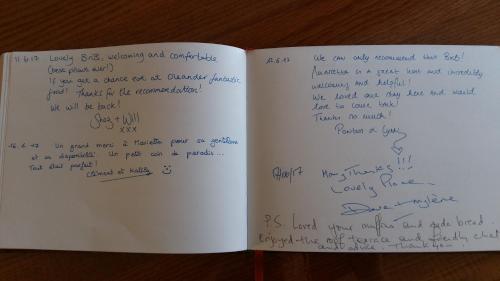 11.6.17 Lovely BnB, welcoming and comfortable
(best pillows ever!)
If you get a chance eat at Oleander fantastic
food! Thanks for the recommendation!
We will be back!
Shaz + Will
xxx
16.6.17 Un grand merci à Marietta pour sa gentillesse
et sa disponibilité. Un petit coin de paradis...
Tout était parfait!
Clément et
.6.17 We can only recommend this BnB!
Marietta is a great host and incredibly
welcoming and helpful!
We loved our stay here and would
love to come back!
Thanks so much!
Many Thanks!!!
Lovely Place
Dave + Mylène
P.S. Loved your muffins and bread
Enjoyed the roof terrace and friendly chat
and advice. Thank you.